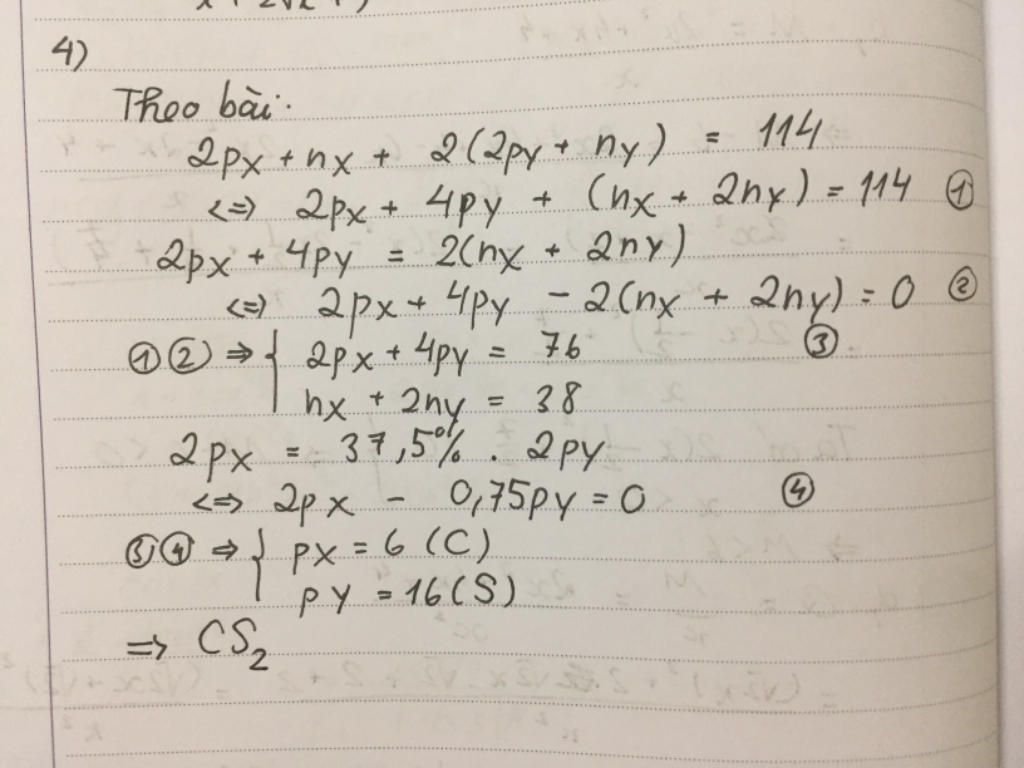 4)
Theo bài:
2px + nx + 2(2py + ny) = 114
<=> 2px + 4py + (nx + 2ny) = 114 ①
2px + 4py = 2(nx + 2ny)
<=> 2px + 4py - 2(nx + 2ny) = 0 ②
①② => { 2px + 4py = 76 ③
nx + 2ny = 38
2px = 37,5% . 2py
<=> 2px - 0,75py = 0 ④
③④ => { px = 6 (C)
py = 16 (S)
=> CS₂